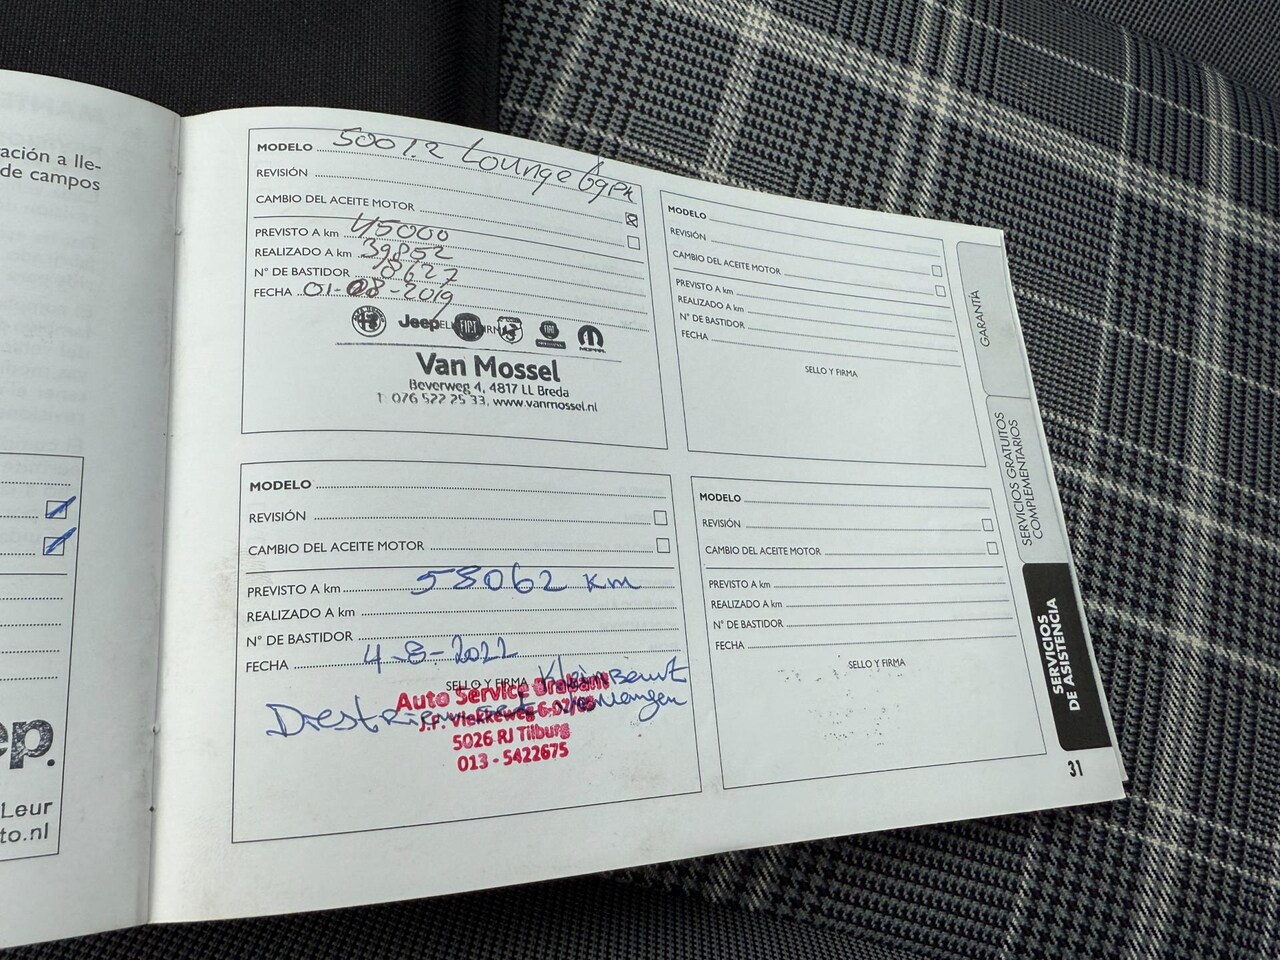 ación a lle-
de campos
ep.
Leur
to.nl
MODELO 500 1.2 Lounge
REVISIÓN
CAMBIO DEL ACEITE MOTOR
PREVISTO A km 45000
REALIZADO A km 39852
N° DE BASTIDOR 8627
FECHA 01-08-2019
Jeep FIAT
MOPAR
Van Mossel
Beverweg 4, 4817 LL Breda
T 076 522 25 33, www.vanmossel.nl
MODELO
REVISIÓN
CAMBIO DEL ACEITE MOTOR
PREVISTO A km 58062 km
REALIZADO A km
N° DE BASTIDOR
FECHA 4-8-2022
SELLO Y FIRMA
Auto Service Brabant
J.F. Vlekkeweg
5026 RJ Tilburg
013 - 5422675
MODELO
REVISIÓN
CAMBIO DEL ACEITE MOTOR
PREVISTO A km
REALIZADO A km
N° DE BASTIDOR
FECHA
SELLO Y FIRMA
MODELO
REVISIÓN
CAMBIO DEL ACEITE MOTOR
PREVISTO A km
REALIZADO A km
N° DE BASTIDOR
FECHA
SELLO Y FIRMA
GARANTÍA
SERVICIOS GRATUITOS
COMPLEMENTARIOS
SERVICIOS
DE ASISTENCIA
31